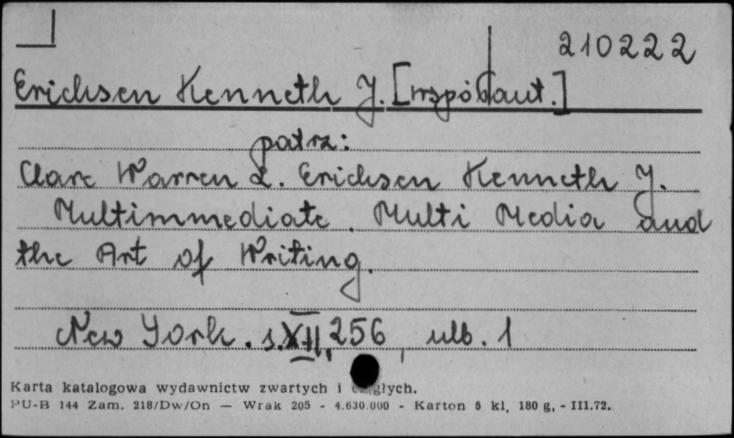 210222
Erichsen Kenneth J. [współaut.]
patrz:
Clare Warren L. Erichsen Kenneth J.
Multimmediate. Multi Media and
the Art of Writing.
New York. s. XII, 256, ulb. 1
Karta katalogowa wydawnictw zwartych i ciągłych.
PU-B 144 Zam. 218/Dw/On — Wrak 205 - 4.630.000 - Karton 5 kl. 180 g, - III.72.